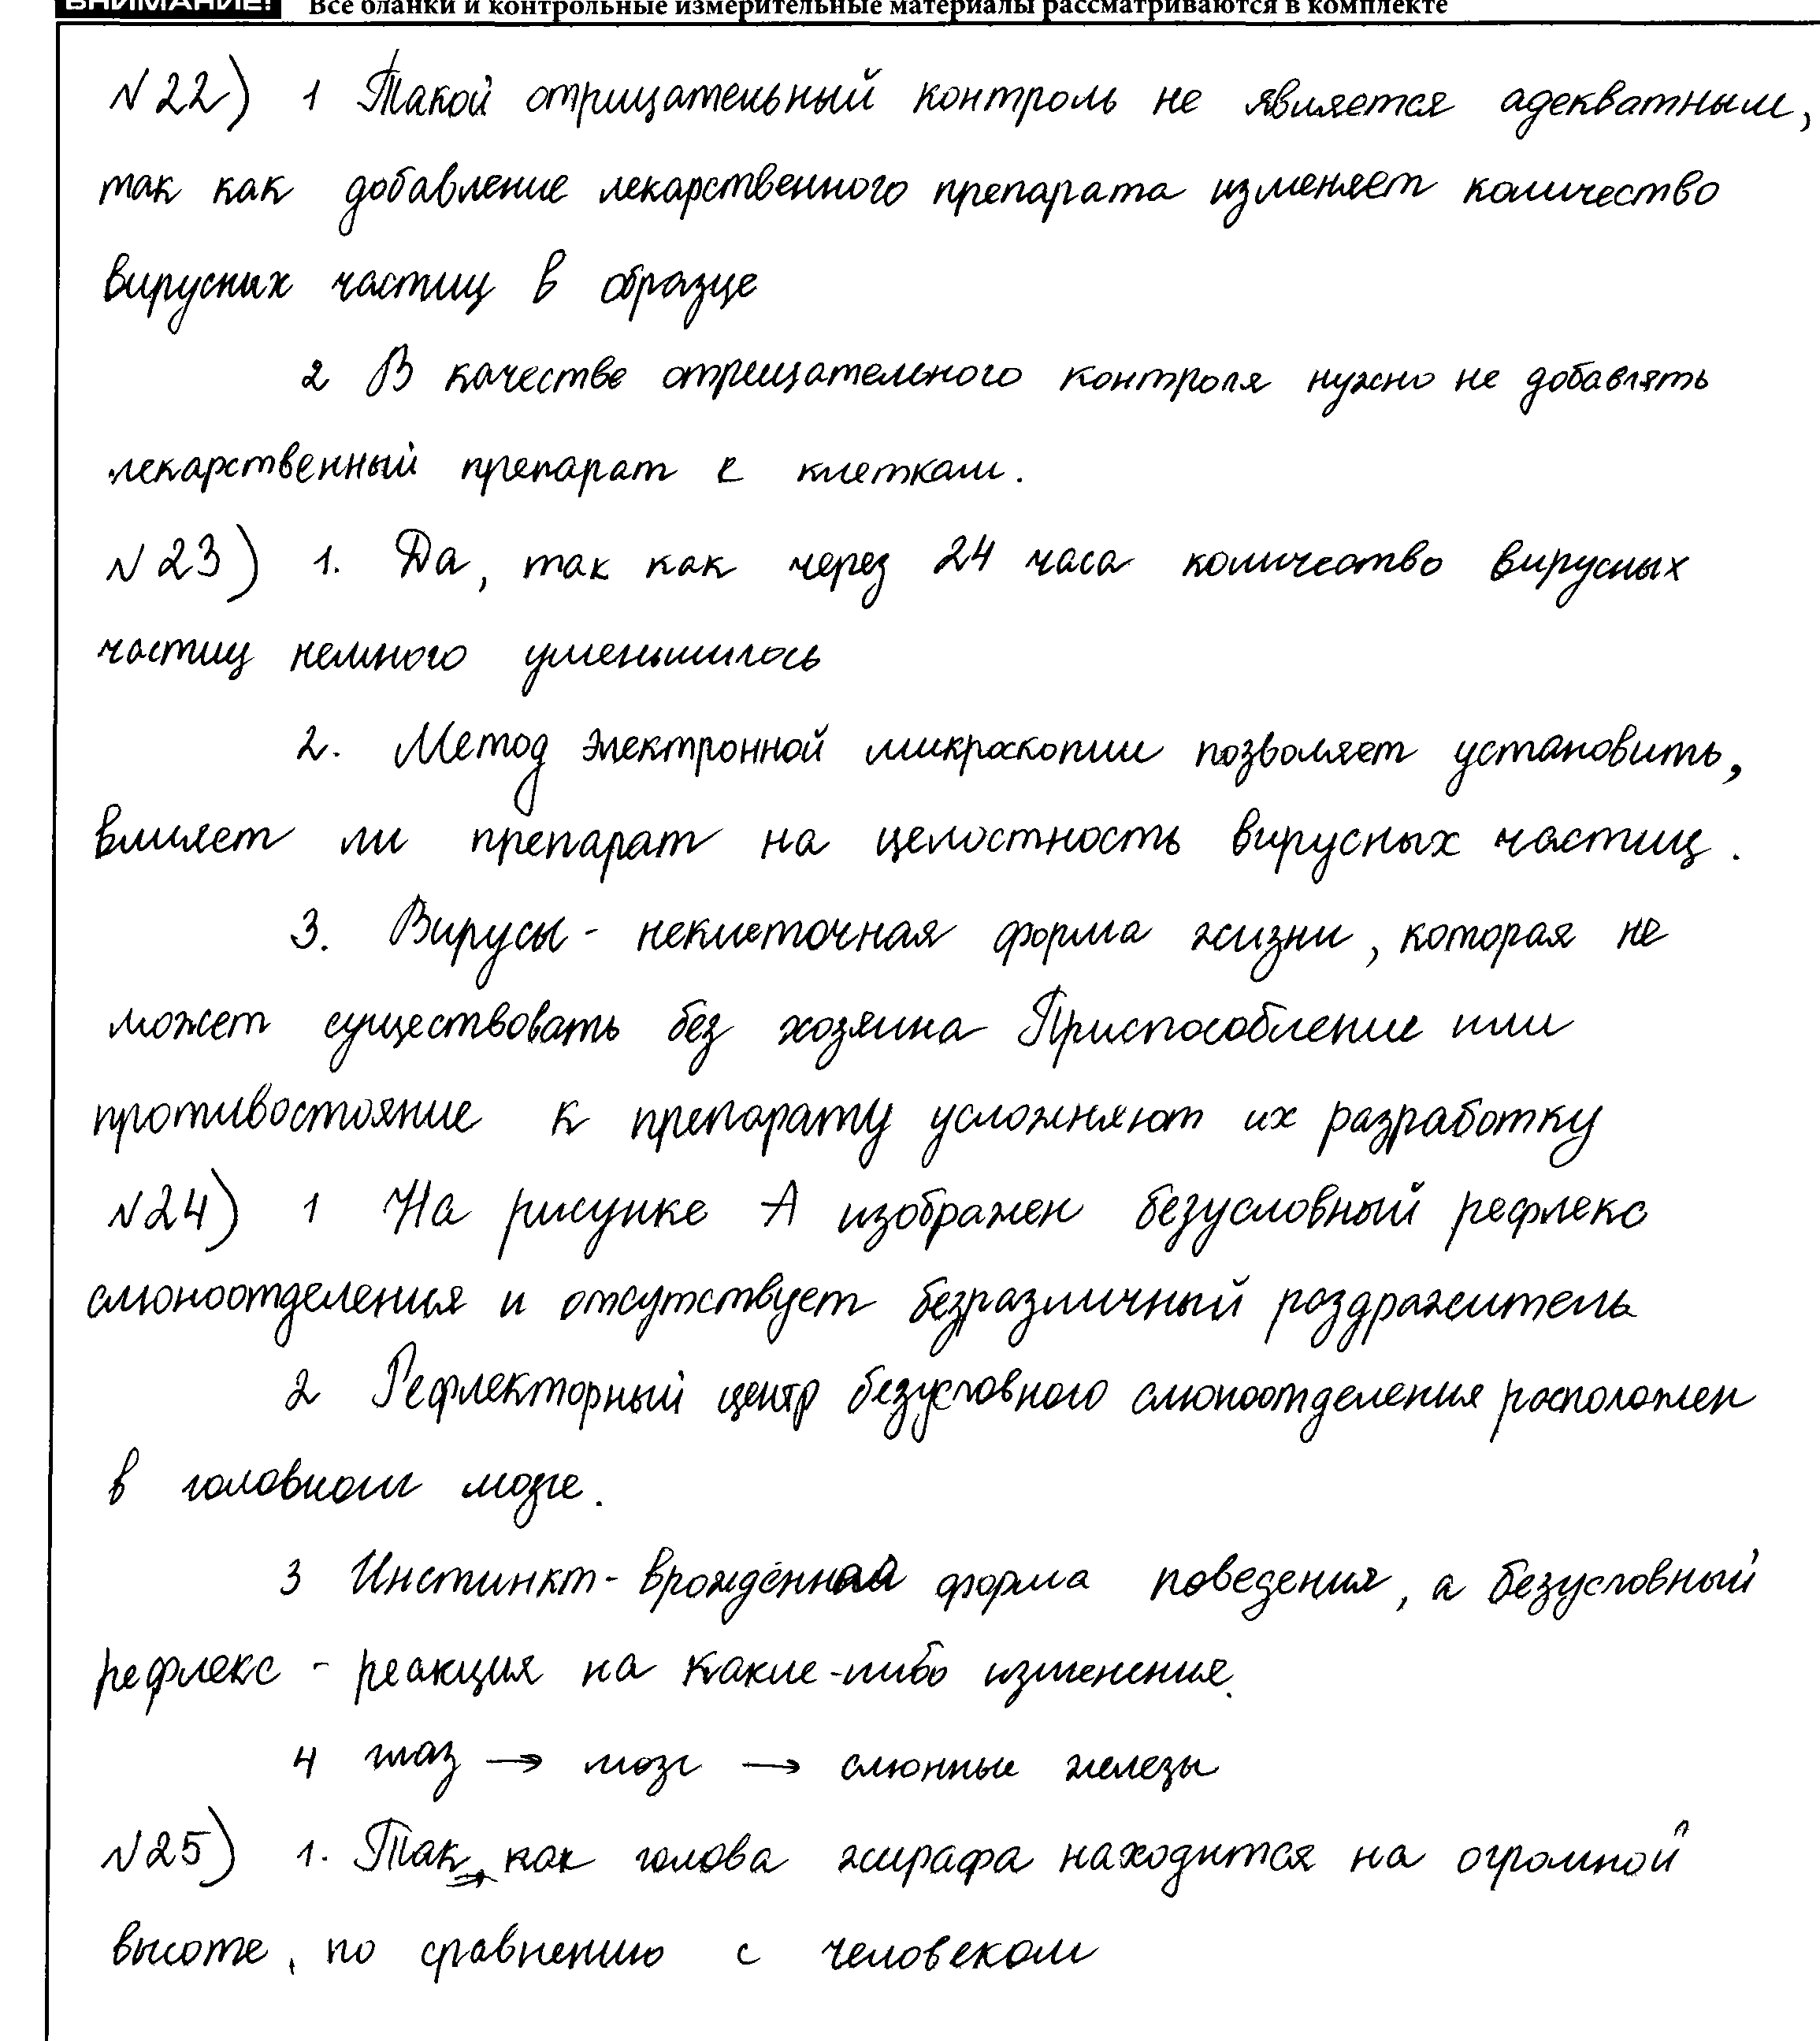 ВНИМАНИЕ! Все бланки и контрольные измерительные материалы рассматриваются в комплекте
№22) 1 Такой отрицательный контроль не является адекватным,
так как добавление лекарственного препарата изменяет количество
вирусных частиц в образце
2 В качестве отрицательного контроля нужно не добавлять
лекарственный препарат к клеткам.
№23) 1. Да, так как через 24 часа количество вирусных
частиц немного уменьшилось
2. Метод электронной микроскопии позволяет установить,
влияет ли препарат на целостность вирусных частиц.
3. Вирусы - неклеточная форма жизни, которая не
может существовать без хозяина Приспособление или
противостояние к препарату усложняют их разработку
№24) 1 На рисунке А изображен безусловный рефлекс
слюноотделения и отсутствует безразличный раздражитель
2 Рефлекторный центр безусловного слюноотделения расположен
в головном мозге.
3 Инстинкт - врождённая форма поведения, а безусловный
рефлекс - реакция на какие-либо изменения.
4 глаз → мозг → слюнные железы
№25) 1. Так, как голова жирафа находится на огромной
высоте, по сравнению с человеком